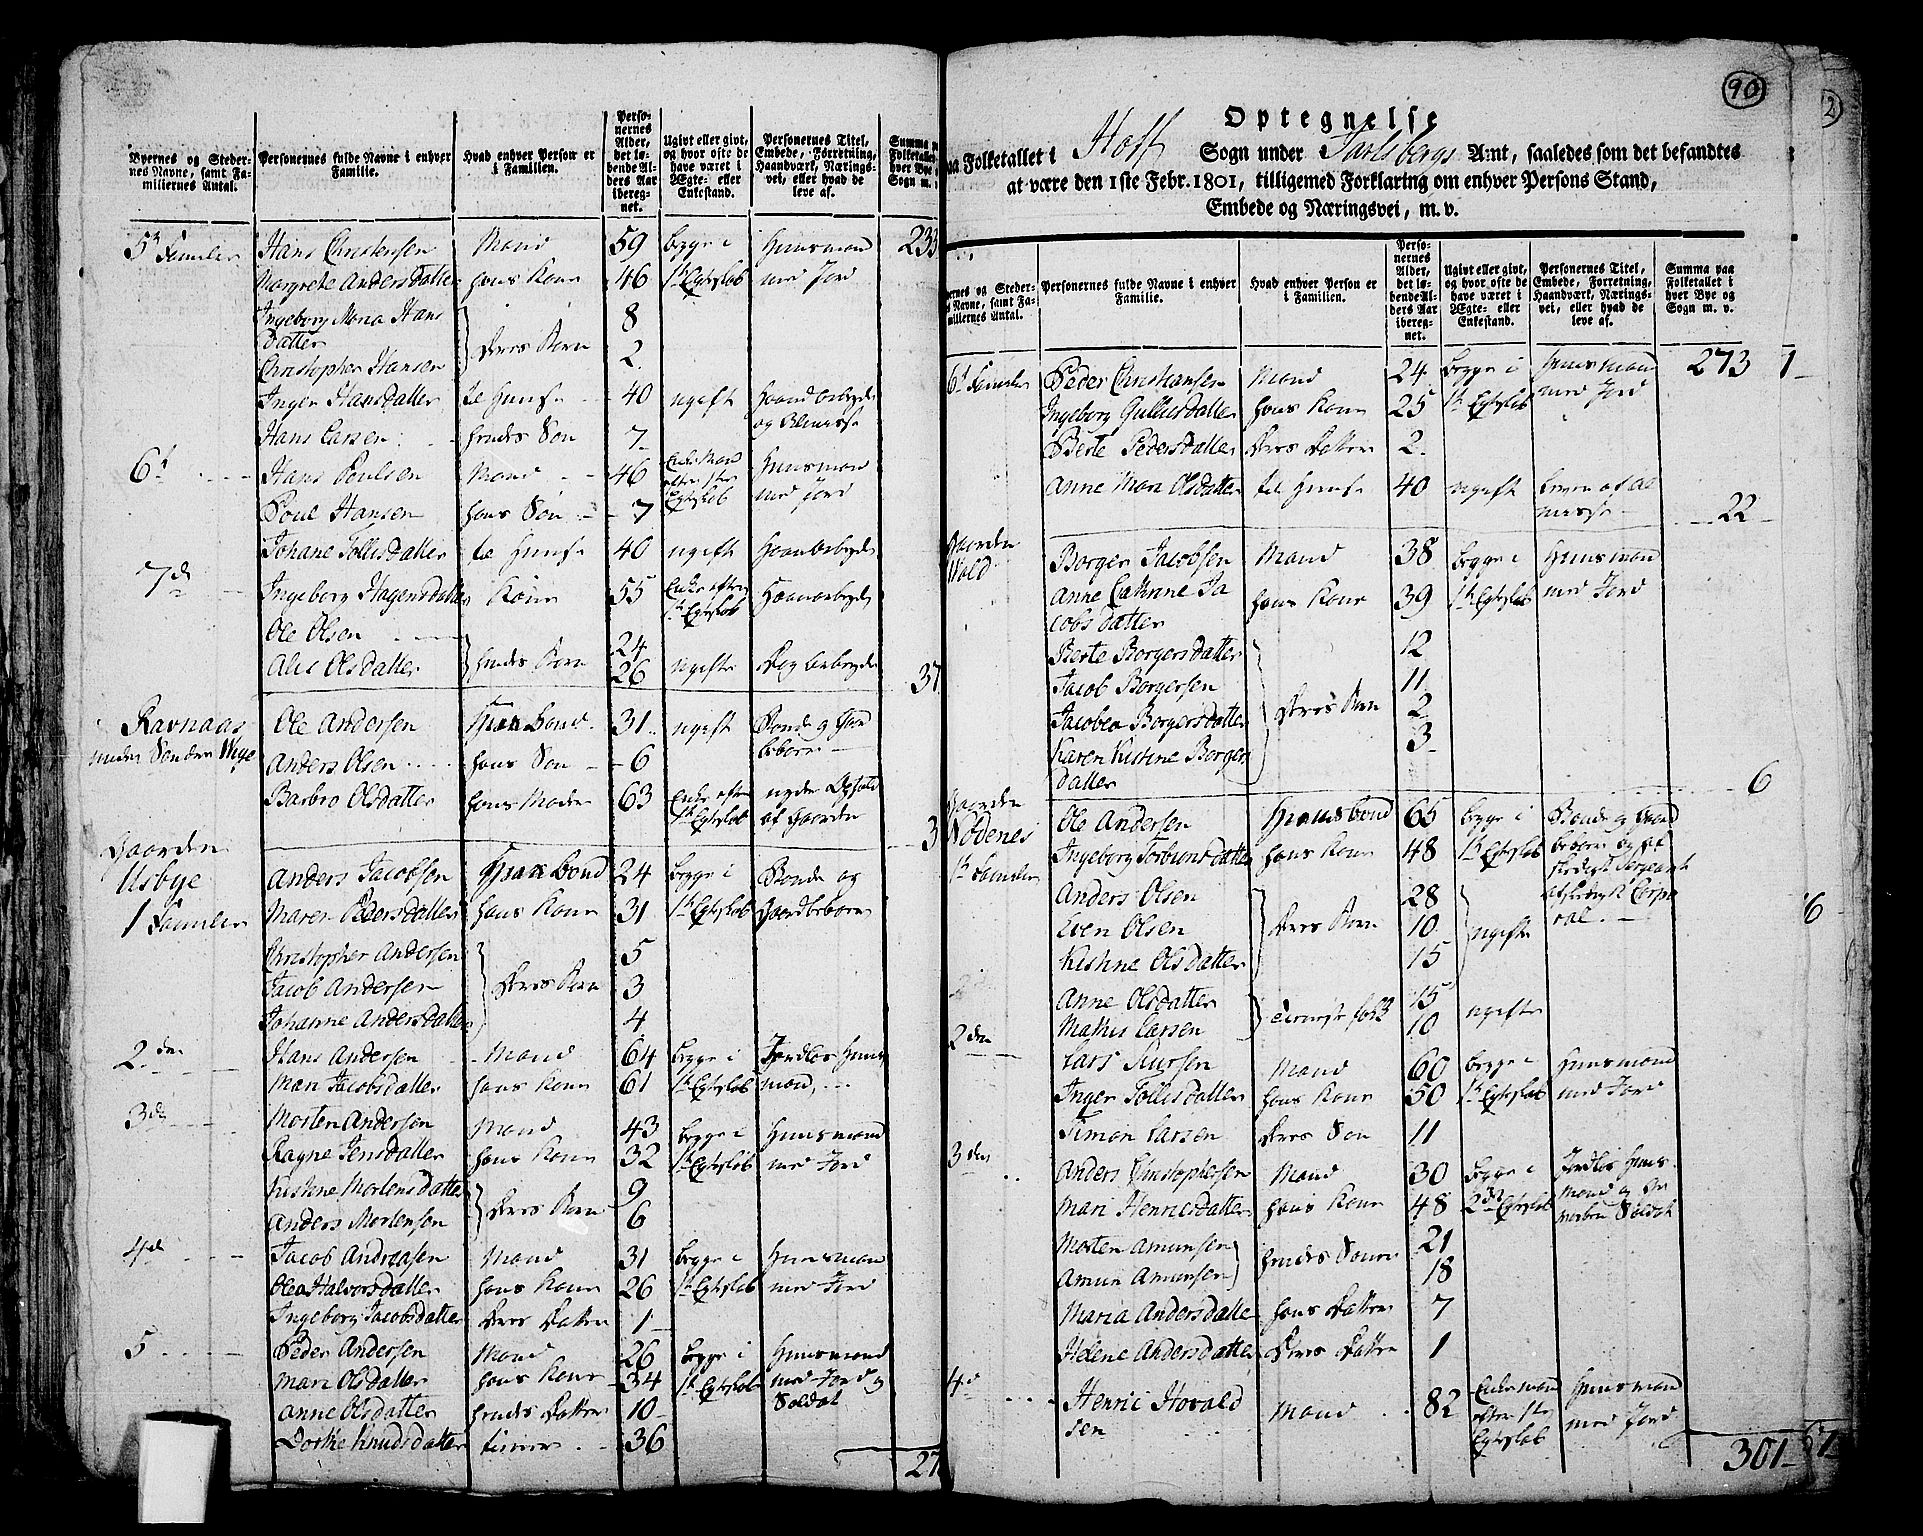 Byernes og Stedernes Navne, samt Familiernes Antal.
Personernes fulde Navne i enhver Familie.
Hvad enhver Person er i Familien.
Personernes Alder, det løbende Alders Aar iberegnet.
Ugivt eller givt, og hvor ofte de have været i Ægte- eller Enkestand.
Personernes Titel, Embede, Forretning, Haandværk, Næringsvei, eller hvad de leve af.
5t Familie Hans Christensen Mand 59 begge i Huusmand
Margrete Andersdatter hans Kone 46 1te Egteskab med Jord
Ingeborg Maria Hans 8
datter } deres Børn
Christopher Hansen 2
Inger Hansdatter til Huuse 40 ugift Haandarbeyde
og Almisse
Hans Larsen hendes Søn 7
6t Hans Poulsen Mand 46 Enkemand efter 1te Egteskab Huusmand
Poul Hansen hans Søn 7 med Jord
Johane Tollisdatter til Huuse 40 ugift Haandarbeyde
7de Ingeborg Hagensdatter Kone 55 Enke efter Haandarbeyde
1te Egteskab
Ole Olsen 24
} hendes Børn ugifte
Alis Olsdatter 26 37
Ravnaas Ole Andersen Huusbond 31 ugift Bonde og Gaard
under Søndre
beboer
Anders Olsen hans Søn 6
Barbro Olsdatter hans Moder 63 Enke efter nyder Ophold
1te Egteskab af Gaarden 3
Gaarden
Usbye Anders Jacobsen Huusbond 24 begge i Bonde og
1 Familie Maren Pedersdatter hans Kone 31 1te Egteskab Gaardbeboer
Christopher Andersen 5
Jacob Andersen } deres Børn 3
Johanne Andersdatter 4
2den Hans Andersen Mand 64 begge i Jordløs Huus
Mari Jacobsdatter hans Kone 61 1te Egteskab mand
3de Morten Andersen Mand 43 begge i Huusmand
Ragne Jensdatter hans Kone 32 1te Egteskab med Jord
Kistine Mortensdatter 9
} deres Børn
Anders Mortensen 6
4de Jacob Andreasen Mand 31 begge i Huusmand
Olea Halvorsdatter hans Kone 26 1te Egteskab med Jord
Ingeborg Jacobsdatter deres Datter 1
5 Peder Andersen Mand 26 begge i Huusmand
Mari Olsdatter hans Kone 34 1te Egteskab med Jord og
Soldat
Anne Olsdatter hendes Datter 10
Dorthe Knudsdatter 36
90
2
Optegnelse
Folketallet i Hoff Sogn under Jarlsbergs Amt, saaledes som det befandtes
at være den 1ste Febr. 1801, tilligemed Forklaring om enhver Persons Stand,
Embede og Næringsvei, m. v.
Personernes fulde Navne i enhver Familie.
Hvad enhver Person er i Familien.
Personernes Alder, det løbende Alders Aar iberegnet.
Ugivt eller givt, og hvor ofte de have været i Ægte- eller Enkestand.
Personernes Titel, Embede, Forretning, Haandværk, Næringsvei, eller hvad de leve af.
Summa paa Folketallet i hver Bye og Sogn m. v.
6t Familie Peder Christiansen Mand 24 begge i Huusmand 273 1
Ingeborg Gulliksdatter hans Kone 25 1te Egteskab med Jord
Berte Pedersdatter deres Datter 2
Anne Mari Olsdatter til Huuse 40 ugift lever af Al
misse 22
Gaarden
Borger Jacobsen Mand 38 begge i Huusmand
Anne Cathrine Ja hans Kone 39 1te Egteskab med Jord
cobsdatter
Berte Borgersdatter 12
Jacob Borgersen 11
Jacobea Borgersdatter } deres Børn 2
Karen Kistine Borgers 3
datter
6
Gaarden
Ole Andersen Huusbond 65 begge i Bonde og Gaard
1te Familie Ingeborg Torbiønsdatter hans Kone 48 1te Egteskab
Anders Olsen 28
Even Olsen } deres Børn 10 } ugifte
Kistine Olsdatter 15
Anne Olsdatter 15
} tieneste folk ugifte
Mathis Larsen 10
2den Lars Mand 60 begge i Huusmand
Inger Tollisdatter hans Kone 50 1te Egteskab med Jord
Simon Larsen deres Søn 11
3den Anders Christophersen Mand 30 begge i Jordløs Huus
Mari Henricsdatter hans Kone 48 2det Egteskab mand og
Soldat
Morten Amunsen 21
} hendes Sønner
Amun Amunsen 18
Maria Andersdatte hans Datter 7
Helene Andersdatter deres Datter 1
4de Henric Hovald Mand 82 Enkemand Huusmand
sen efter 1te Egteskab med Jord
301